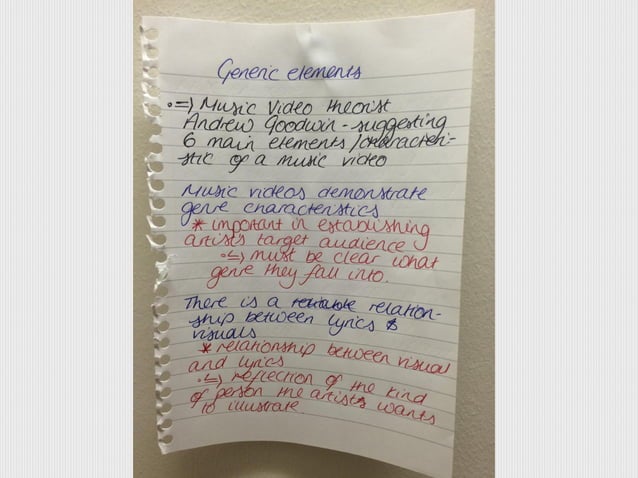 Generic elements
•=) Music Video theorist
Andrew Goodwin - suggesting
6 main elements / characteri-
stic of a music video
Music videos demonstrate
genre characteristics
* important in establishing
artist's target audience
•↳) must be clear what
genre they fall into.
There is a relation-
ship between lyrics &
visuals
* relationship between visual
and lyrics
•↳) reflection of the kind
of person the artists wants
to illustrate